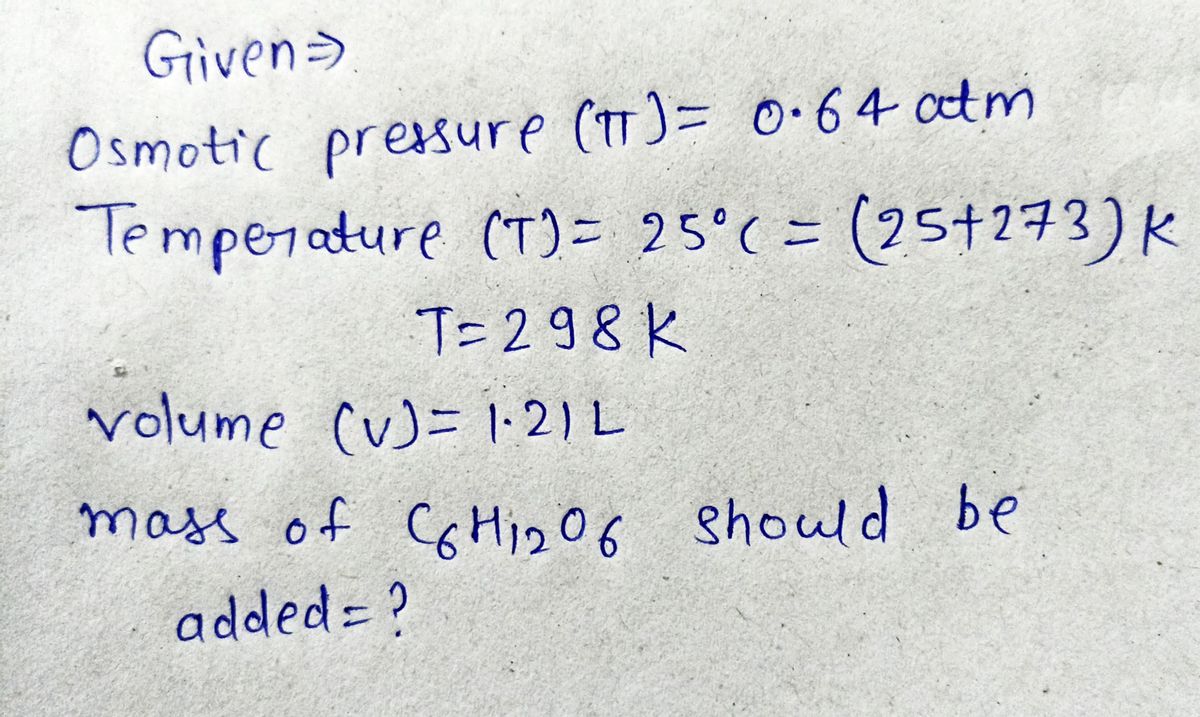 Given ⇒
Osmotic pressure (π) = 0.64 atm
Temperature (T) = 25°C = (25+273) K
T = 298 K
volume (V) = 1.21 L
mass of C6H12O6 should be
added = ?